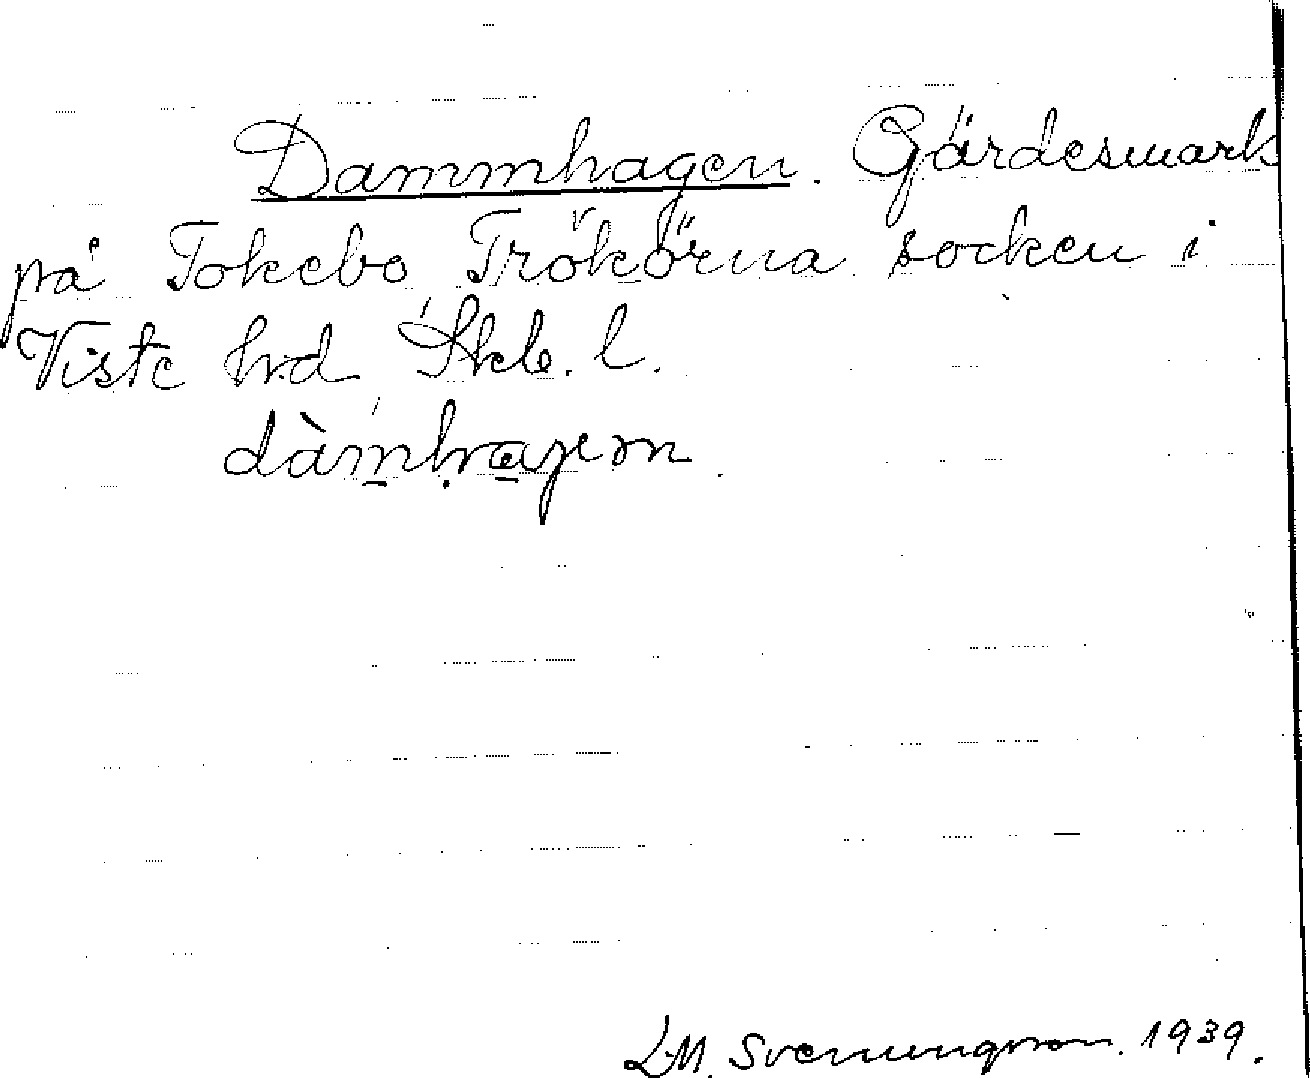 Dammhagen. Gärdesmark
på Tokebo Trökörna socken i
Viste hrd Skb. l.
dàmhagen.
L.M. Svenungsson. 1939.